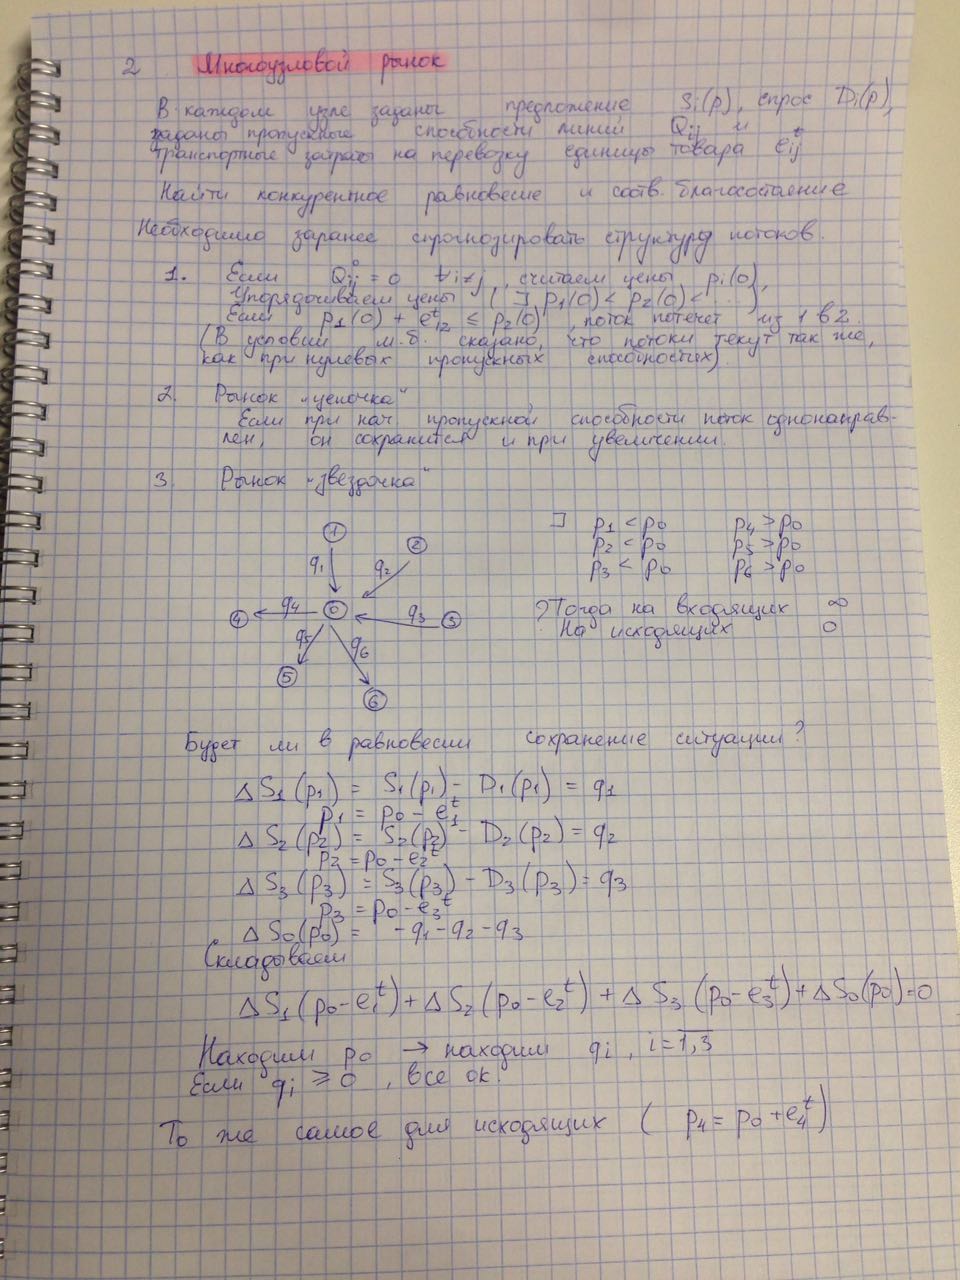 2 Многоузловой рынок
В каждом узле заданы предложение Si(p), спрос Di(p),
заданы пропускные способности линий Qij и
транспортные затраты на перевозку единицы товара eᵗij
Найти конкурентное равновесие и соотв. благосостояние
Необходимо заранее спрогнозировать структуру потоков.
1. Если Q⁰ij = 0 ∀ i≠j, считаем цены pi(0),
Упорядочиваем цены (] p1(0) < p2(0) < ...)
Если p1(0) + eᵗ12 ≤ p2(0), поток потечет из 1 в 2.
(В условии м.б. сказано, что потоки текут так же,
как при нулевых пропускных способностях)
2. Рынок „цепочка“
Если при нач. пропускной способности поток однонаправ-
лен, он сохранится и при увеличении.
3. Рынок „звездочка“
1
2
q1
q2
] p1 < p0 p4 > p0
p2 < p0 p5 > p0
p3 < p0 p6 > p0
4 q4 0 q3 3
q5 q6
5
6
? Тогда на входящих ∞
На исходящих 0
Будет ли в равновесии сохранение ситуации?
ΔS1(p1) = S1(p1) - D1(p1) = q1
p1 = p0 - eᵗ1
ΔS2(p2) = S2(p2) - D2(p2) = q2
p2 = p0 - eᵗ2
ΔS3(p3) = S3(p3) - D3(p3) = q3
p3 = p0 - eᵗ3
ΔS0(p0) = -q1 - q2 - q3
Складываем
ΔS1(p0 - eᵗ1) + ΔS2(p0 - eᵗ2) + ΔS3(p0 - eᵗ3) + ΔS0(p0) = 0
Находим p0 → находим qi, i = 1,3
Если qi ≥ 0, все ок.
То же самое для исходящих (p4 = p0 + eᵗ4)